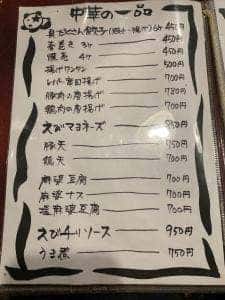 中華の一品
具だくさん餃子(焼き・揚げ)6ケ 450円
春巻き 3ケ 450円
焼売 4ケ 450円
揚げワンタン 500円
レバー唐揚げ 700円
豚肉の唐揚げ 780円
鶏肉の唐揚げ 700円
えびマヨネーズ 950円
豚天 750円
鶏天 700円
麻婆豆腐 700円
麻婆ナス 700円
塩麻婆豆腐 700円
えびチリソース 950円
うま煮 750円